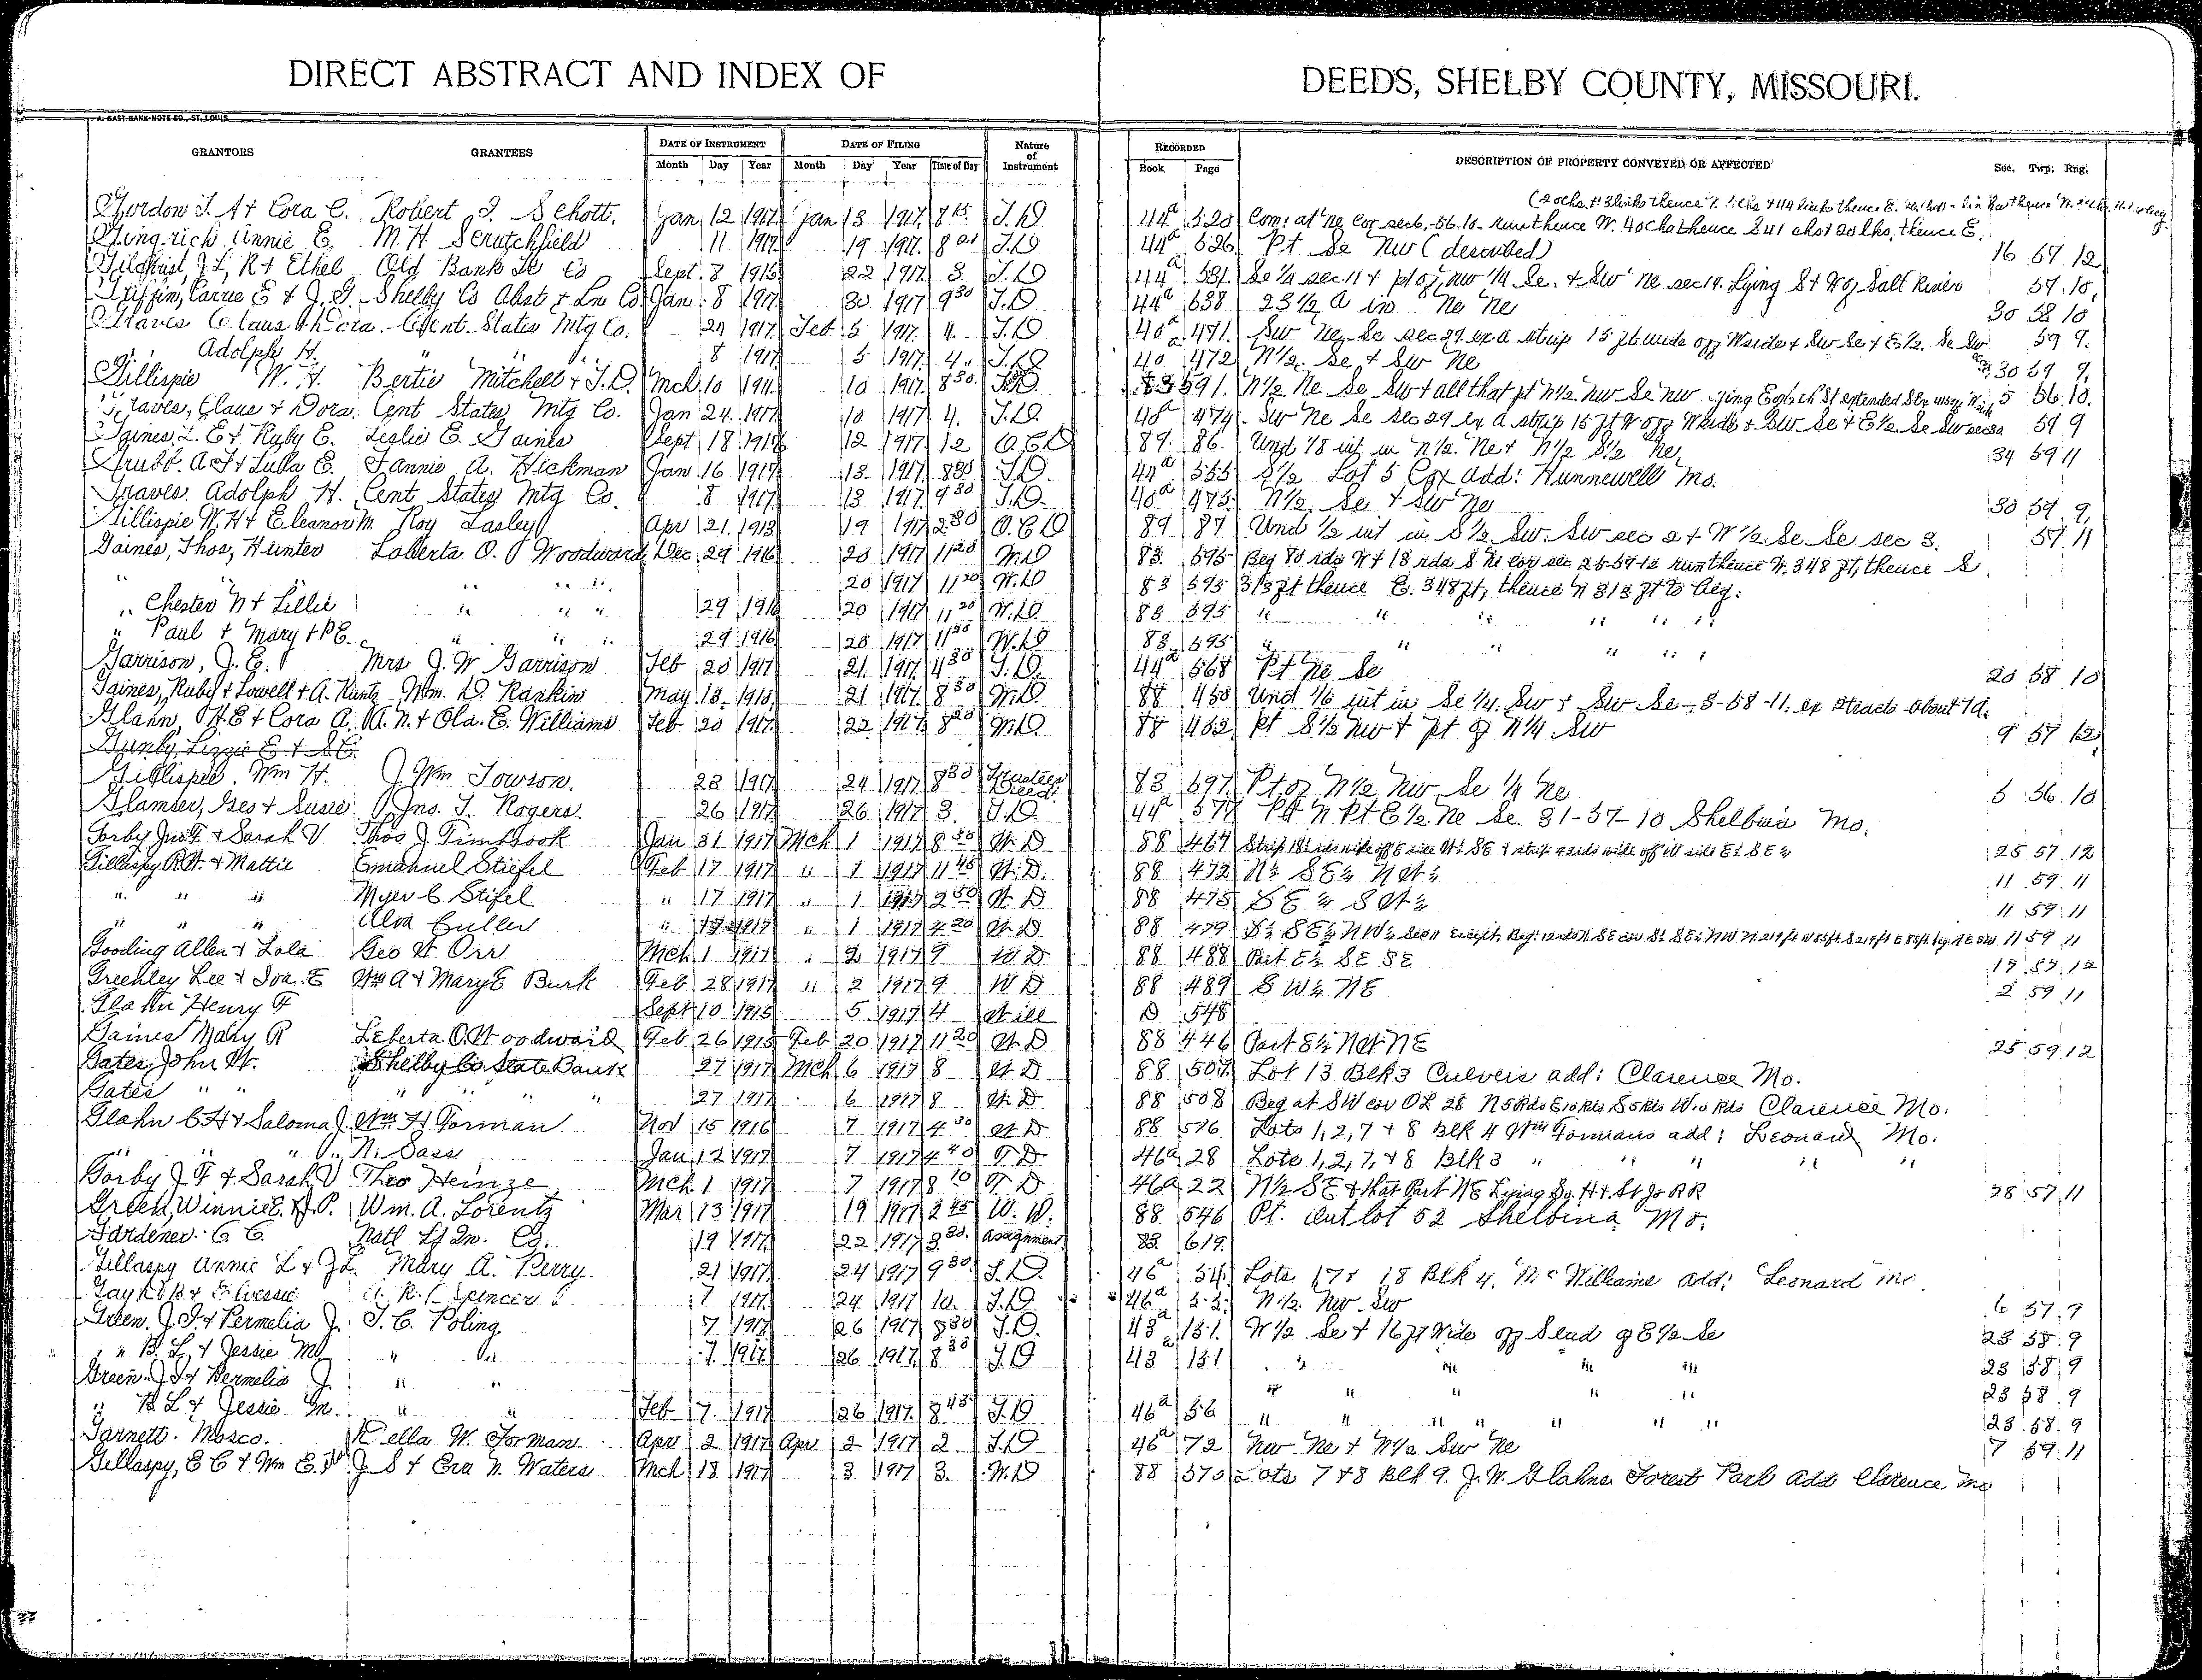 DIRECT ABSTRACT AND INDEX OF DEEDS, SHELBY COUNTY, MISSOURI.
A. GAST BANK NOTE CO., ST. LOUIS
GRANTORS GRANTEES DATE OF INSTRUMENT DATE OF FILING Nature of Instrument RECORDED DESCRIPTION OF PROPERTY CONVEYED OR AFFECTED Sec. Twp. Rng.
Month Day Year Month Day Year Time of Day Book Page
Gordon J. A + Cora C. Robert J. Schott. Jan 12 1917 Jan 13 1917 8 15 T.D 44a 520 Com: at Ne Cor sec 6,-56.10. run thence W. 40 chs thence S 41 chs + 20 lks, thence E.
Gingrich Annie E. M. H Scrutchfield 11 1917 19 1917 T.D 44a 526 Pt Se Nw (described) 16 57 12
R + Ethel Old Bank Co Sept. 8 1916 22 1917 3 T.D 44a 531 Se 1/4 sec 11 + pt of Nw 1/4 Se. + Sw Ne sec 14. Lying S + W of Salt River 57 10
Griffin, Carrie E + J. G. Shelby Co Abst + Ln Co Jan 8 1917 30 1917 9 30 T.D 44a 538 23 1/2 A in Ne Ne 30 58 10
Graves Claus + Dora. Cent. States Mtg Co. 24 1917 Feb 5 1917 4 T.D 40a 471 Sw Ne Se sec 29 ex a strip 15 ft wide off W side + Sw Se + E 1/2 Se Sw 59 9
" Adolph H. " " " 8 1917 5 1917 4 T.D 40a 472 N 1/2 Se + Sw Ne 30 59 9
Gillispie W. H. Bertie Mitchell + J.D. Mch 10 1911 10 1917 8 30 83 591 N 1/2 Ne Se Sw + all that pt N 1/2 Nw Se Nw lying E of 6th St extended 5 56 10
Graves, Claus + Dora. Cent States Mtg Co. Jan 24 1917 10 1917 4. T.D. 40a 474 Sw Ne Se sec 29 ex a strip 15 ft W off W side + Sw Se + E 1/2 Se Sw 59 9
Gaines L. E + Ruby E. Leslie E. Gaines Sept 18 1916 12 1917 12 Q.C.D 89 86 Und 1/8 int in N 1/2 Ne + N 1/2 S 1/2 Ne 34 59 11
Grubb. A.J + Lulla E. Fannie A. Hickman Jan 16 1917 13 1917 8 30 T.D. 44a 555 S 1/2 Lot 5 Cox Add: Hunnewell Mo.
Graves. Adolph H. Cent States Mtg Co. 8 1917 13 1917 9 30 T.D. 40a 475 N 1/2 Se + Sw Ne 30 59 9
Gillispie W. H + Eleanor M. Roy Lasley Apr 21 1913 19 1917 2 30 Q.C.D 89 87 Und 1/2 int in S 1/2 Sw. Sw sec 2 + W 1/2 Se Se sec 3. 57 11
Gaines, Thos, Hunter Laberta O. Woodward Dec. 29 1916 20 1917 11 20 W.D 83 595 Beg 80 rds W + 18 rds S Ne Cor sec 25-59-12 run thence W. 348 ft, thence S
" " " " 20 1917 11 20 W.D 83 595 313 ft thence E. 348 ft, thence N 313 ft to beg.
" Chester N + Lillie " " " 29 1916 20 1917 11 20 W.D. 83 595 " " " " "
" Paul + Mary + P E. " " " 29 1916 20 1917 11 20 W.D 83 595 " " " " "
Garrison, J. E. Mrs J. W Garrison Feb 20 1917 21 1917 4 30 T.D. 44a 568 Pt Ne Se 20 58 10
Gaines, Ruby + Lowell + A. Kuntz Wm. D. Rankin May 13 21 1917 8 30 W.D. 88 450 Und 1/6 int in Se 1/4 Sw + Sw Se - 3-58-11. ex about 1 a.
Glahn, H E + Cora A. A. N. + Ola. E. Williams Feb 20 1917 22 1917 8 20 W.D. 88 452 Pt S 1/2 Nw + pt of N 1/4 Sw 9 57 12
Gunby Lizzie E + S.E.
Gillispie. Wm H. J. Wm Towson. 23 1917 24 1917 8 30 Trustees Deed 83 597 Pt of N 1/2 Nw Se 1/4 Ne 5 56 10
Glamser, Geo + Susie Jno. T. Rogers. 26 1917 26 1917 3. T.D. 44a 577 Pt N Pt E 1/2 Ne Se. 31-57-10 Shelbina Mo.
Gorby Jno F. + Sarah V Thos J Timbrook Jan 31 1917 Mch 1 1917 8 30 W.D 88 467 25 57 12
Gillaspy R.W. + Mattie Emanuel Stiefel Feb 17 1917 " 1 1917 11 45 W.D. 88 472 N 1/2 SE 1/4 NW 1/4 11 59 11
" " " Myer C Stifel " 17 1917 " 1 1917 2 50 W.D 88 475 SE 1/4 SW 1/4 11 59 11
" " " Alva Culler " 17 1917 " 1 1917 4 20 W D 88 479 S 1/2 SE 1/4 NW 1/4 Sec 11 Except, 11 59 11
Gooding Allen + Lola Geo W. Orr Mch 1 1917 " 2 1917 9 W D 88 488 Part E 1/2 SE SE 17 57 12
Greenley Lee + Iva. E Wm A + Mary E Burk Feb 28 1917 " 2 1917 9 W D 88 489 S W 1/4 NE 2 59 11
Glahn Henry F Sept 10 1915 5 1917 4 Will D 548
Gaines Mary R Leberta O. Woodward Feb 26 1915 Feb 20 1917 11 20 W.D 88 446 Part E 1/2 NW NE 25 59 12
Gates, John W. Shelby Co State Bank 27 1917 Mch 6 1917 8 W.D 88 507 Lot 13 Blk 3 Culvers add: Clarence Mo.
Gates " " " " " " 27 1917 6 1917 8 W.D 88 508 Beg at SW cor OL 28 N 5 Rds E 10 Rds S 5 Rds W 10 Rds Clarence Mo.
Glahn C H + Saloma J. Wm H Forman Nov 15 1916 7 1917 4 30 W D 88 516 Lots 1, 2, 7 + 8 Blk 4 Wm Formans add: Leonard Mo.
" " " V. N. Sass Jan 12 1917 7 1917 4 40 T D 46a 28 Lots 1, 2, 7, + 8 Blk 3 " " " " "
Gorby J F + Sarah V Theo Heinze Mch 1 1917 7 1917 8 10 T D 46a 22 N 1/2 SE + that Part NE Lying So. H + St Jo RR 28 57 11
Green, Winnie E. + J. P. Wm. A. Lorentz Mar 13 1917 19 1917 2 45 W. D. 88 546 Pt. Outlot 52 Shelbina Mo.
Gardener. C C. Natl Lf In. Co. 19 1917 22 1917 Assignment 83 619.
Gillaspy Annie L + J L. Mary A. Perry 21 1917 24 1917 9 30 T.D. 46a 54 Lots 17 + 18 Blk 4. McWilliams Add: Leonard Mo
Gay Spencer 7 1917 24 1917 10. T.D. 46a N 1/2 Nw Sw 6 57 9
Green. J. T. + Permelia J. T. C. Poling 7 1917 26 1917 8 30 T.D. 43a 151 W 1/2 Se + 16 ft Wide off S end of E 1/2 Se 23 58 9
" B. L. + Jessie M " " 7 1917 26 1917 8 30 T.D 43a 151 " " " " 23 58 9
Green. J T + Permelia J. " " " " " " " 23 58 9
" B L + Jessie M. " " Feb 7 1917 26 1917 8 45 T.D 46a 56 " " " " " " " 23 58 9
Garnett. Mosco. Rella W. Forman Apr 2 1917 Apr 2 1917 2 T.D 46a 72 Nw Ne + N 1/2 Sw Ne 7 59 11
Gillaspy, E C + Wm E. J S + Era N. Waters Mch 18 1917 3 1917 3. W.D 88 570 Lots 7 + 8 Blk 9. J. W. Glahns Forest Park Add Clarence Mo